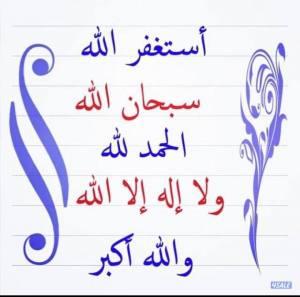 أستغفر الله
سبحان الله
الحمد لله
ولا إله إلا الله
والله أكبر
4SALE